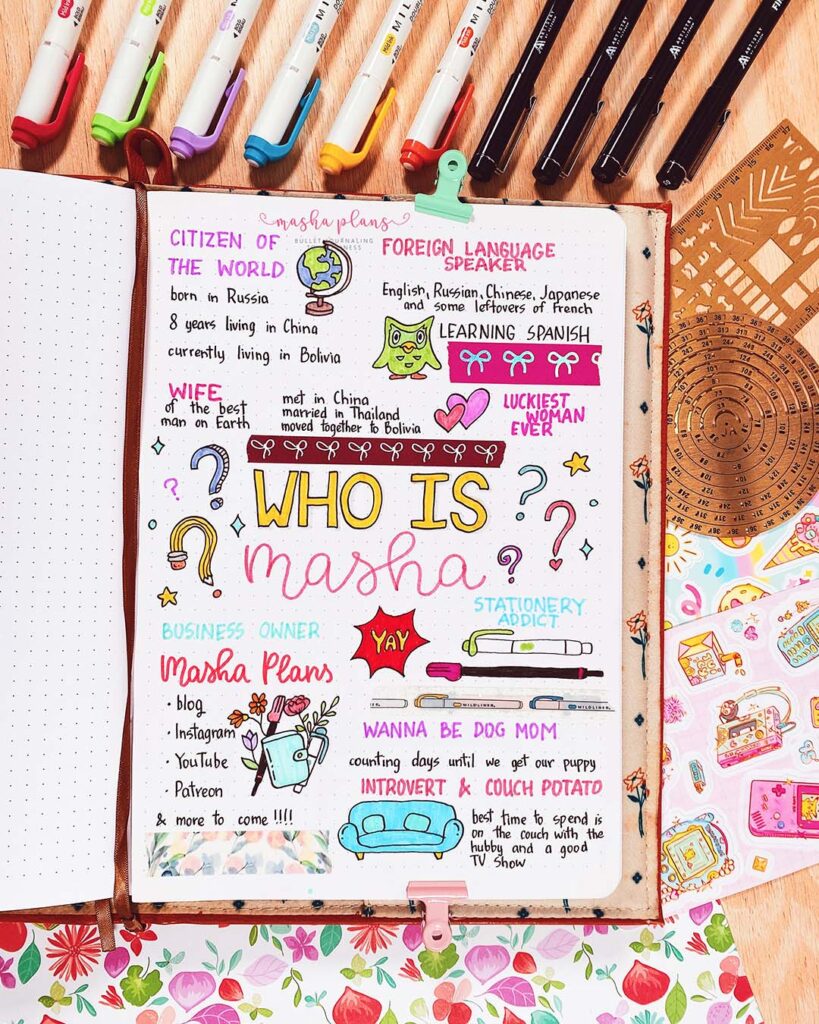 masha plans
BULLET JOURNALING
CITIZEN OF
THE WORLD
born in Russia
8 years living in China
currently living in Bolivia
FOREIGN LANGUAGE
SPEAKER
English, Russian, Chinese, Japanese
and some leftovers of French
LEARNING SPANISH
WIFE
of the best
man on Earth
met in China
married in Thailand
moved together to Bolivia
LUCKIEST
WOMAN
EVER
WHO IS
masha
BUSINESS OWNER
Masha Plans
• blog
• Instagram
• YouTube
• Patreon
& more to come !!!!
YAY
STATIONERY
ADDICT
WILDLINER
WILDLINER
WANNA BE DOG MOM
counting days until we get our puppy
INTROVERT & COUCH POTATO
best time to spend is
on the couch with the
hubby and a good
TV show